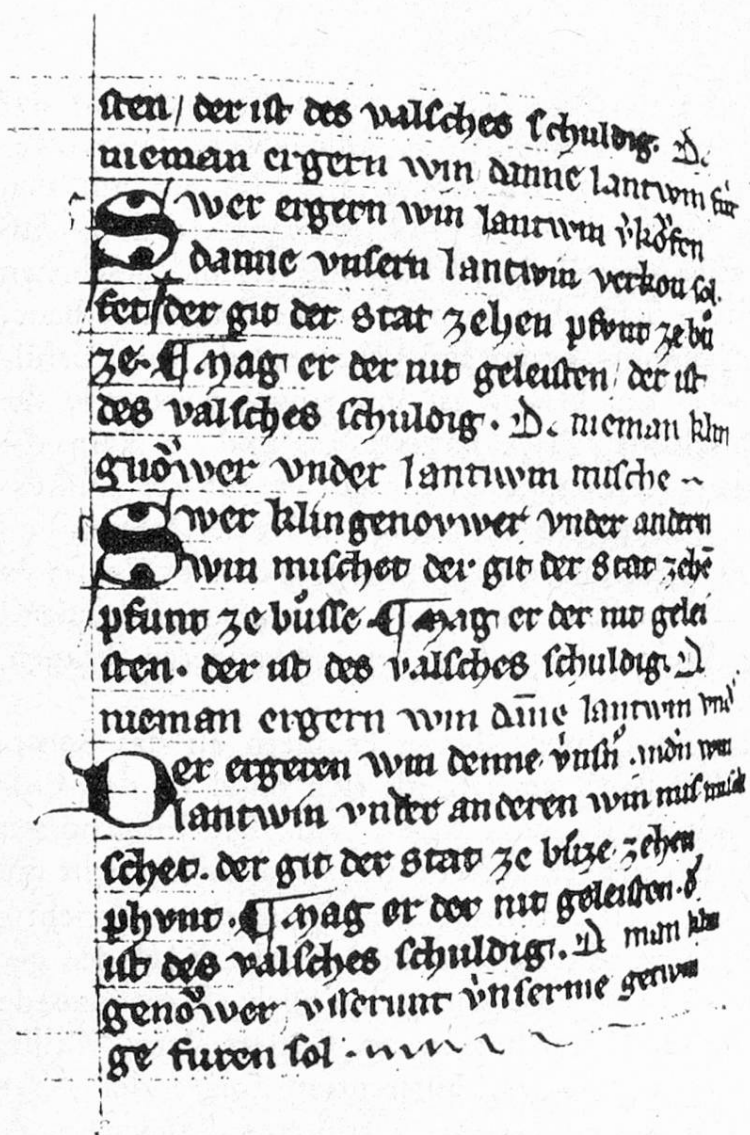 sten / der ist des valsches schuldig. Dc
nieman ergern win danne lantwin für
Swer ergern win lantwin v̓kǒfen
danne vnsern lantwin verkou sol.
fet / der git der stat zehen pfunt ze bů
ze. ¶ Mag er der nit geleisten / der ist
des valsches schuldig. Dc nieman klin
guǒwer vnder lantwin mische
Swer klingenovwer vnder andern
win mischet der git der stat zehē
pfunt ze bůsse ¶ Mag er der nit gelei
sten. der ist des valsches schuldig. D
nieman ergern win dāne lantwin vnd̓
Der ergeren win denne v̓nsn̓
lantwin vnder anderen win mis mische
schet. der git der stat ze bůze. zehen
phvnt. ¶ Mag er der nit geleisten. d̓
ist des valsches schuldig. D man klin
genǒwer, vsserunt v̓nserme getwin
ge furen sol.